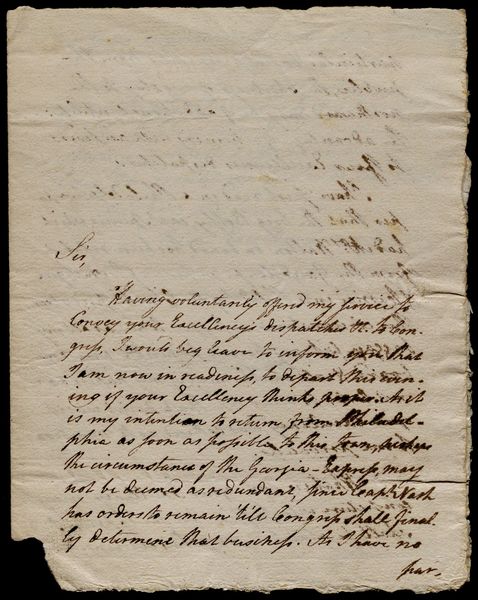 Sir,
Having voluntarily offered my service to
Convey your Excellency's dispatches &c. to Con-
gress, I would beg leave to inform you that
I am now in readiness, to depart this even-
ing if your Excellency thinks proper. As it
is my intention to return from Philadel-
phia as soon as possible to this town,
the circumstance of the Georgia-Express, may
not be deemed as redundant, since Capt. Nash
has orders to remain till Congress shall final-
ly determine that business. As I have no
par-